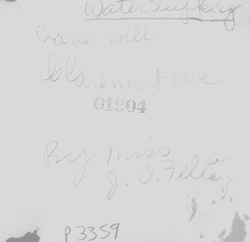 Water Supply
Crane will
Claremont ave
01804
By Miss
J. S.
P3359